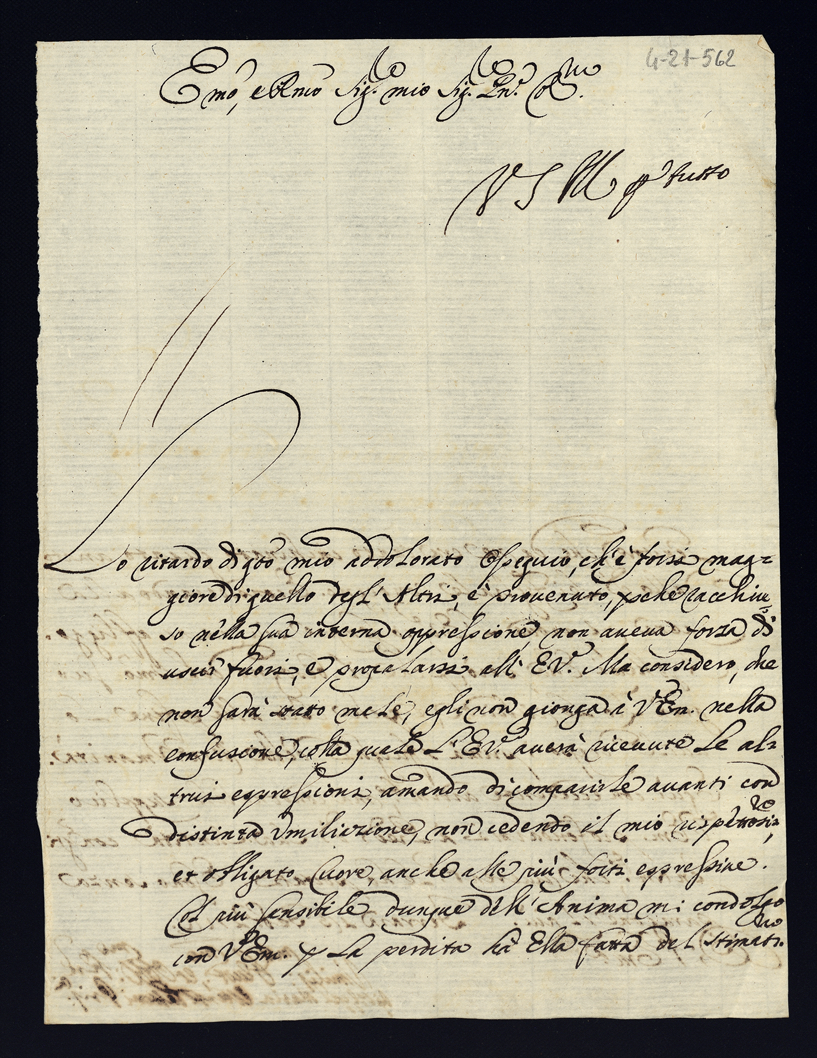 4-21-562
Emo, e Rmo Sig.re mio Sig.re Pne. Col.mo
V S M p tutto
Lo ritardo di gto mio addolorato Ossequio, ch'è forse mag=
giore di quello degl'Altri, è provenuto, pche racchiu=
so nella sua interna oppressione, non aveva forza di
uscir fuori, e propalarsi all'E.V. Ma considero, che
non sarà stato male, egli non gionga à V.Em. nella
confusione, colla quale L'E.V. averà ricevute le al=
trui espressioni, amando di comparirle avanti con
distinta Umiliazione, non cedendo il mio rispettosis.mo,
et obligato Cuore, anche alle più forti espressive.
Col più sensibile dunque dell'Anima mi condolgo
con V.Em. p La perdita hà Ella fatta del Stimatis.mo